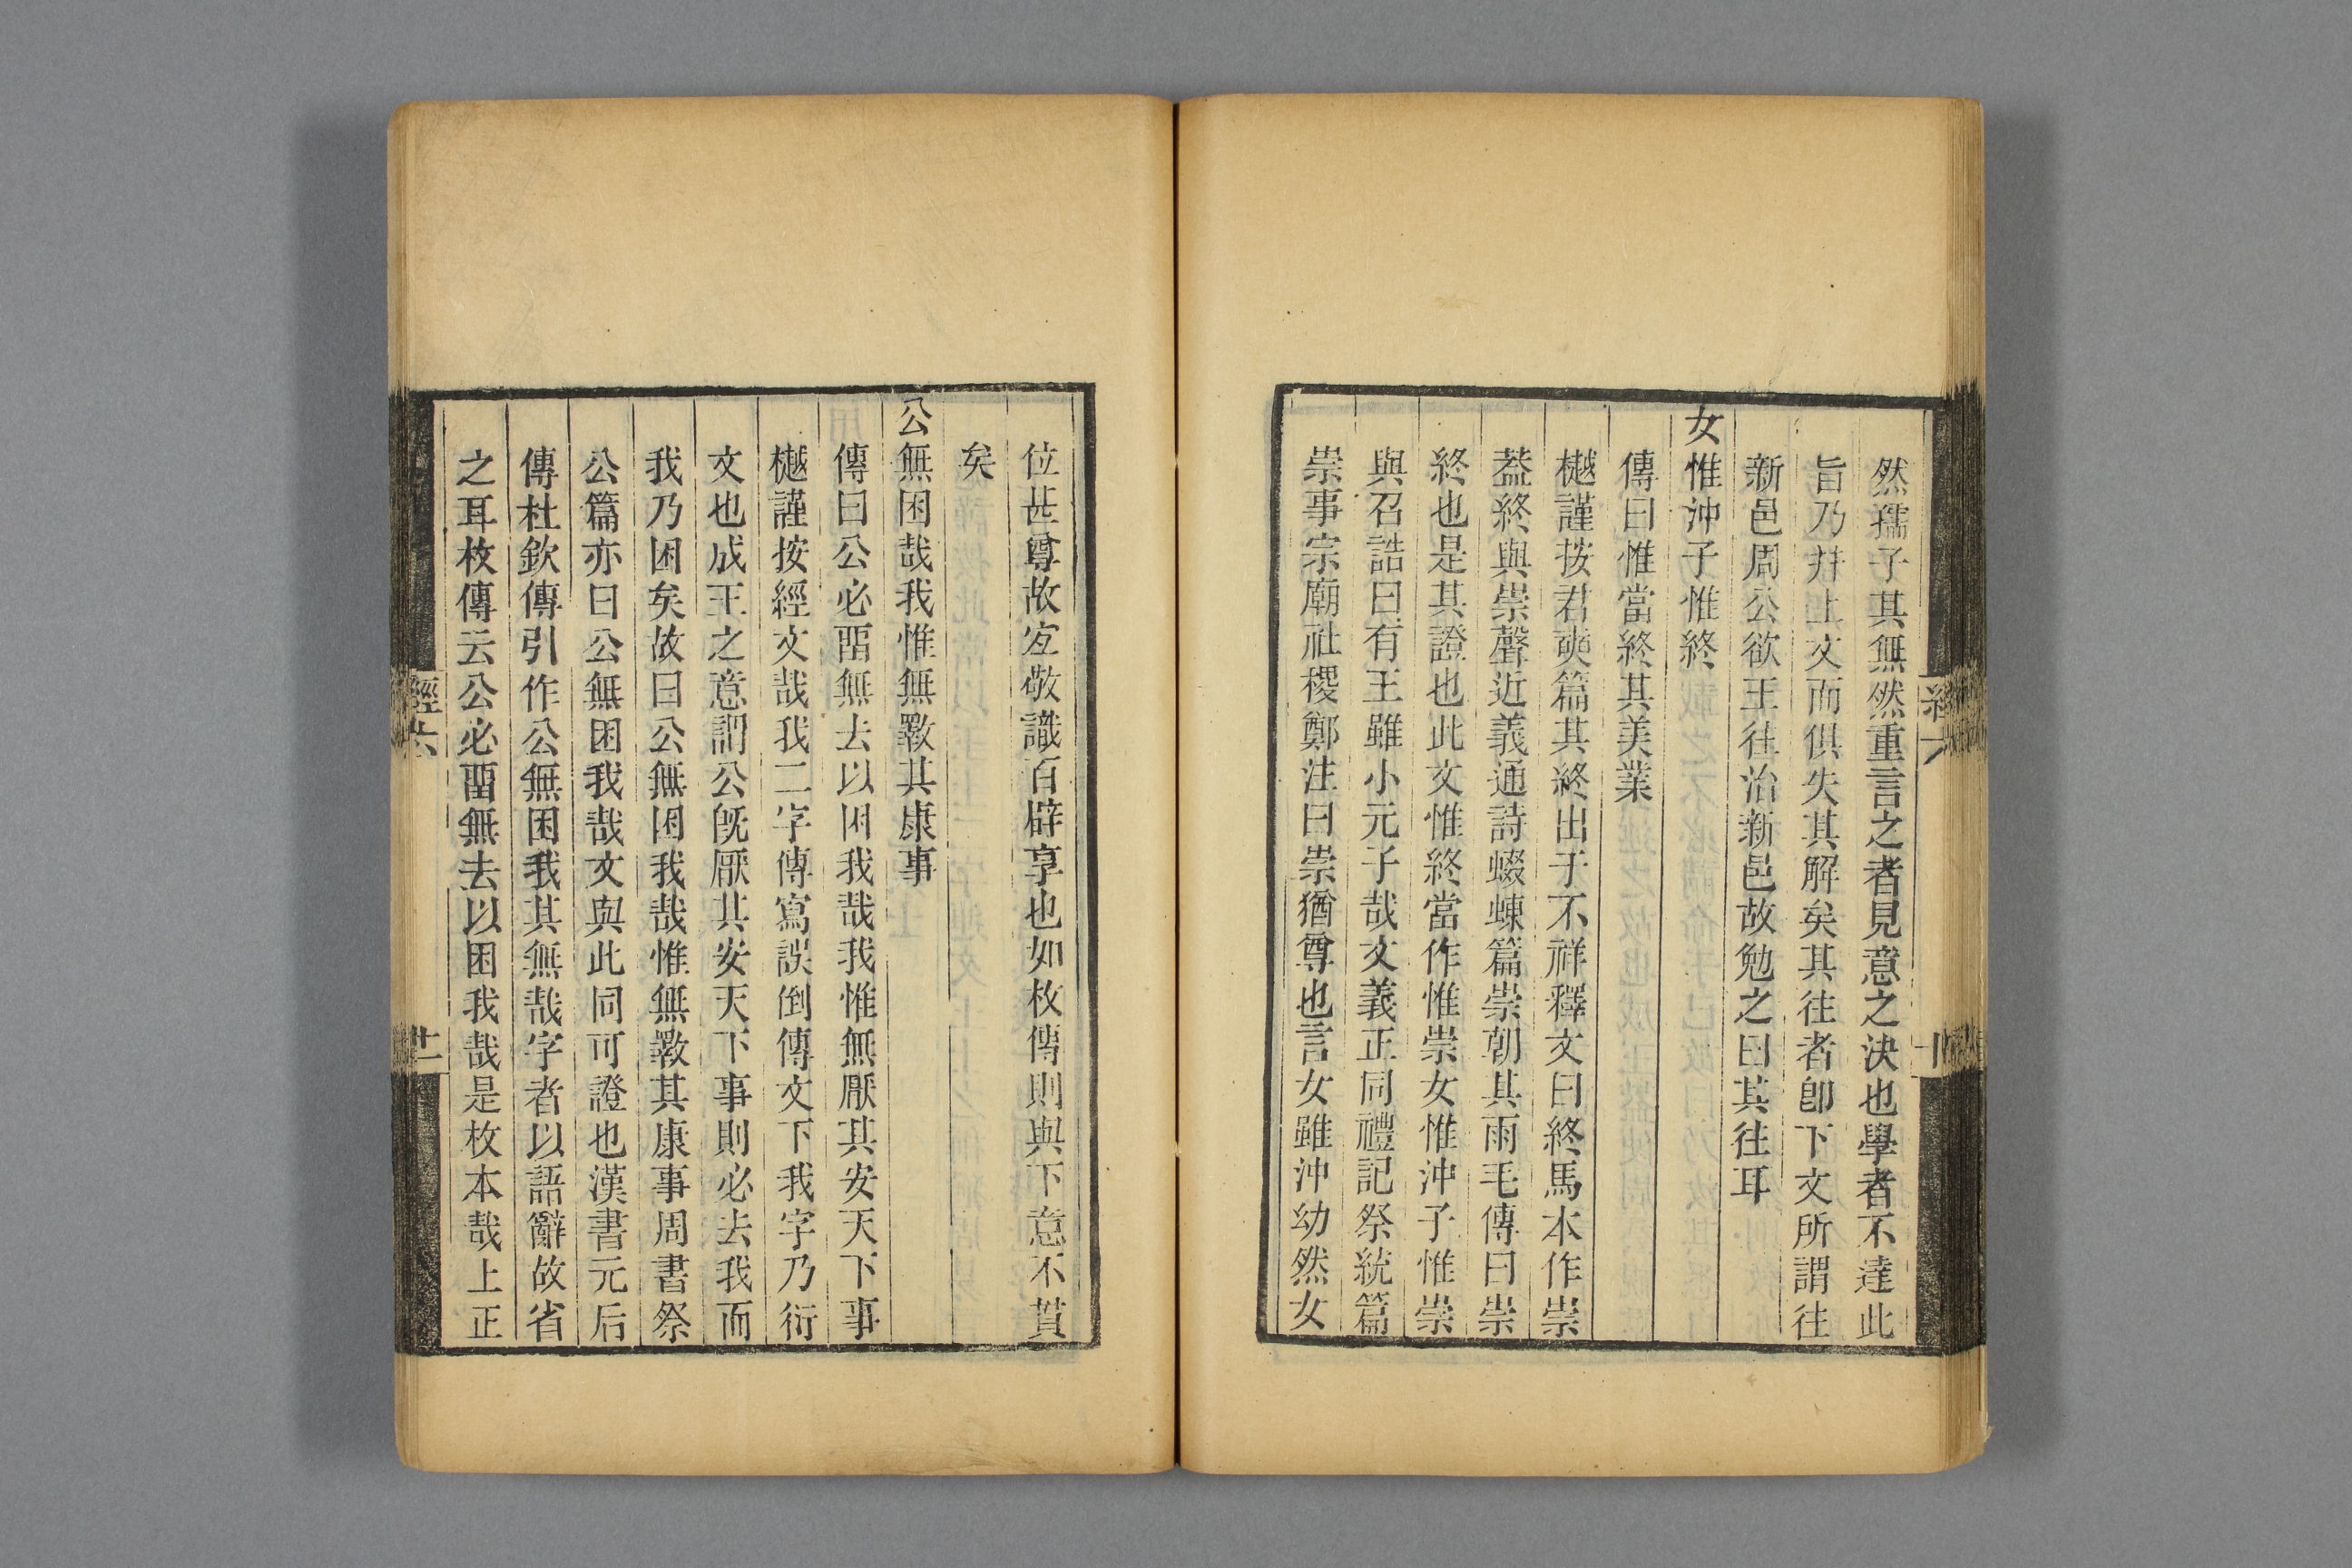 然孺子其無然重言之者見意之決也學者不達此
旨乃幷上文而俱失其解矣其往者卽下文所謂往
新邑周公欲王往治新邑故勉之曰其往耳
女惟沖子惟終
傳曰惟當終其美業
樾謹按君奭篇其終出于不祥釋文曰終馬本作崇
葢終與崇聲近義通詩蝃蝀篇崇朝其雨毛傳曰崇
終也是其證也此文惟終當作惟崇女惟沖子惟崇
與召誥曰有王雖小元子哉文義正同禮記祭統篇
崇事宗廟社稷鄭注曰崇猶尊也言女雖沖幼然女
位甚尊故宐敬識百辟享也如枚傳則與下意不貫
矣
公無困哉我惟無斁其康事
傳曰公必畱無去以困我哉我惟無厭其安天下事
樾謹按經文哉我二字傳寫誤倒傳文下我字乃衍
文也成王之意謂公旣厭其安天下事則必去我而
我乃困矣故曰公無困我哉惟無斁其康事周書祭
公篇亦曰公無困我哉文與此同可證也漢書元后
傳杜欽傳引作公無困我其無哉字者以語辭故省
之耳枚傳云公必畱無去以困我哉是枚本哉上正
經六
十二